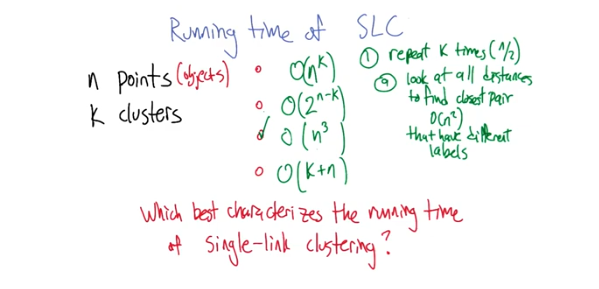 Running time of SLC
n points (objects)
k clusters
O(n^k)
O(2^{n-k})
O(n^3)
O(k+n)
① repeat K times (n/2)
ⓐ look at all distances
to find closest pair
O(n²)
that have different
labels
Which best characterizes the running time
of single-link clustering?